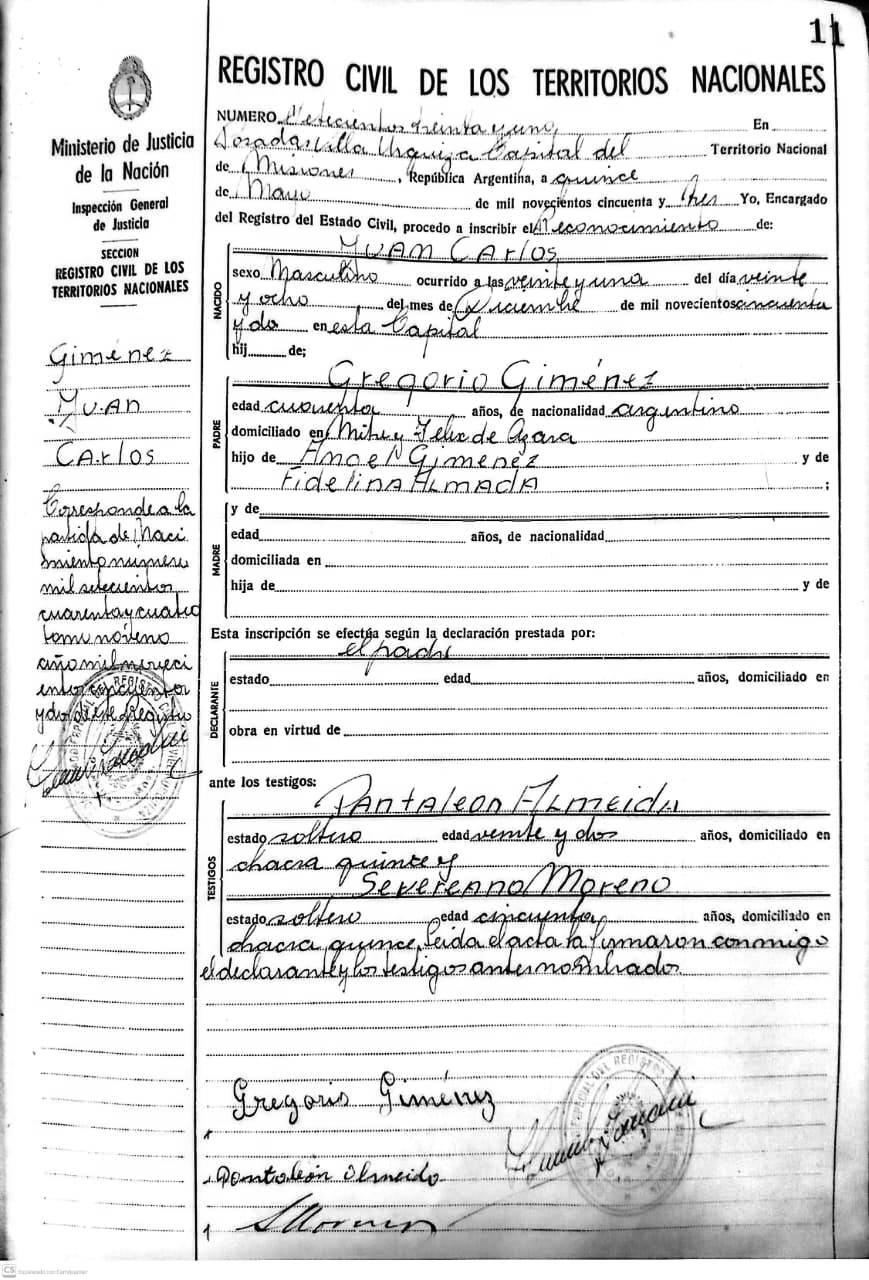 11
REGISTRO CIVIL DE LOS TERRITORIOS NACIONALES
Ministerio de Justicia
de la Nación
Inspección General
de Justicia
SECCION
REGISTRO CIVIL DE LOS
TERRITORIOS NACIONALES
Giménez
Juan
Carlos
Corresponde a la
partida de Naci
miento numero
mil setecientos
cuarenta y cuatro
tomo noveno
año mil noveci
entos cincuenta
y dos de este Registro
NUMERO Setecientos treinta y uno En
Posadas Villa Urquiza Capital del Territorio Nacional
de Misiones, República Argentina, a quince
de Mayo de mil novecientos cincuenta y tres Yo, Encargado
del Registro del Estado Civil, procedo a inscribir el Reconocimiento de:
NACIDO
JUAN CARLOS
sexo Masculino ocurrido a las veinte y una del día veinte
y ocho del mes de Diciembre de mil novecientos cincuenta
y do en esta Capital
hij de;
PADRE
Gregorio Giménez
edad cuarenta años, de nacionalidad argentino
domiciliado en Mitre y Felix de Azara
hijo de Angel Gimenez y de
Fidelina Almada ;
MADRE
y de
edad años, de nacionalidad
domiciliada en
hija de y de
Esta inscripción se efectúa según la declaración prestada por:
DECLARANTE
el padre
estado edad años, domiciliado en
obra en virtud de
ante los testigos:
TESTIGOS
Pantaleon Almeida
estado soltero edad veinte y dos años, domiciliado en
chacra quince y
Severeano Moreno
estado soltero edad cincuenta años, domiciliado en
chacra quince, Leida el acta la firmaron conmigo
el declarante y los testigos antes nombrados.
Gregorio Giménez
Pantaleón Almeida
SMoreno
CS Escaneado con CamScanner